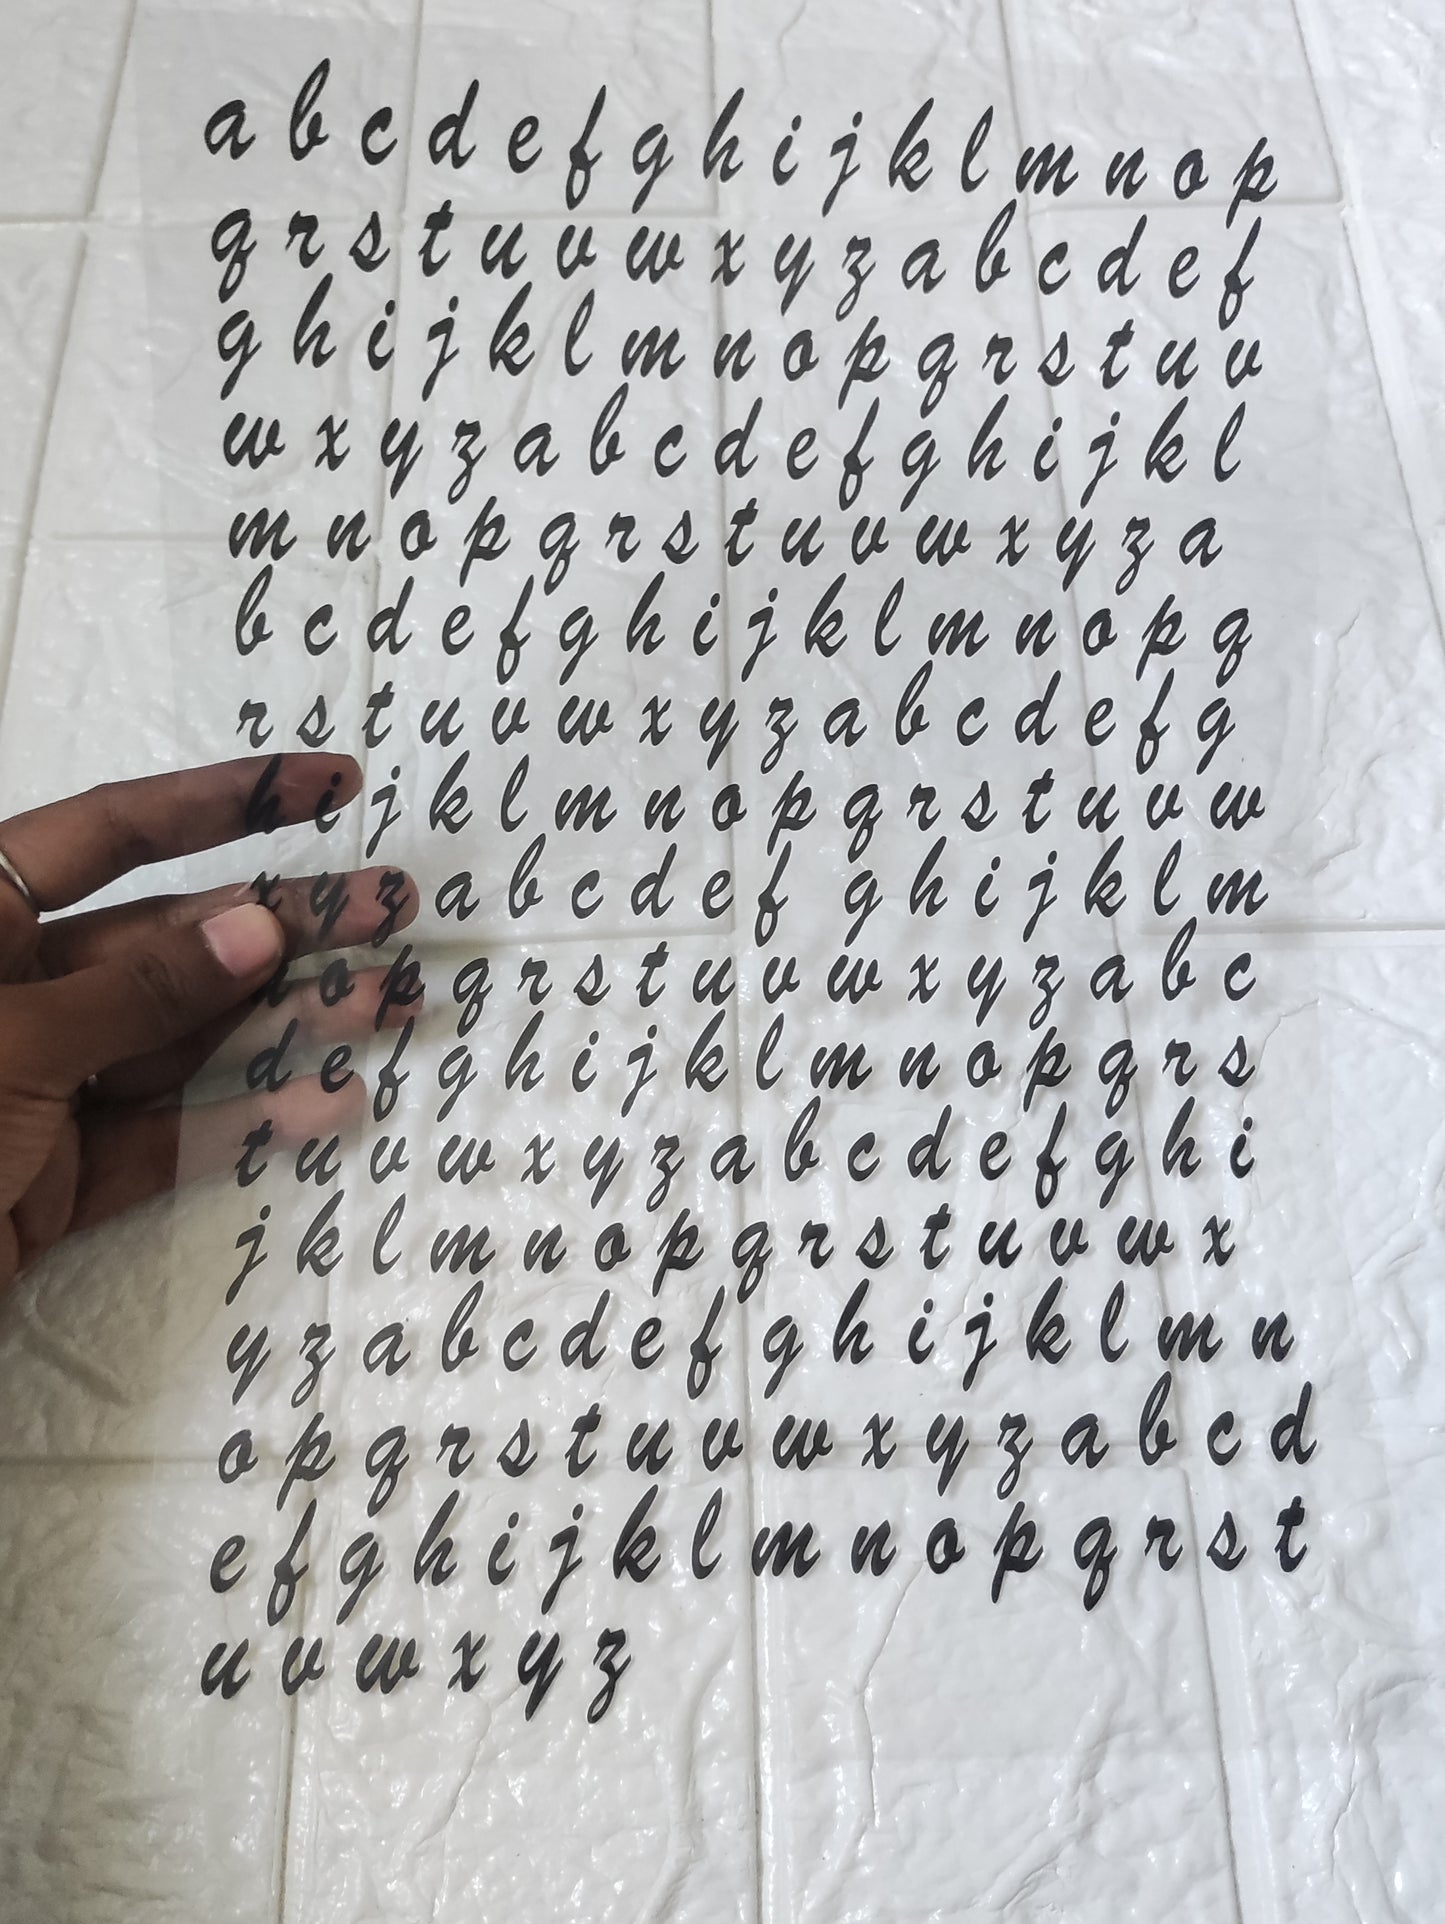 a b c d e f g h i j k l m n o p
q r s t u v w x y z a b c d e f
g h i j k l m n o p q r s t u v
w x y z a b c d e f g h i j k l
m n o p q r s t u v w x y z a
b c d e f g h i j k l m n o p q
r s t u v w x y z a b c d e f g
h i j k l m n o p q r s t u v w
x y z a b c d e f g h i j k l m
n o p q r s t u v w x y z a b c
d e f g h i j k l m n o p q r s
t u v w x y z a b c d e f g h i
j k l m n o p q r s t u v w x
y z a b c d e f g h i j k l m n
o p q r s t u v w x y z a b c d
e f g h i j k l m n o p q r s t
u v w x y z